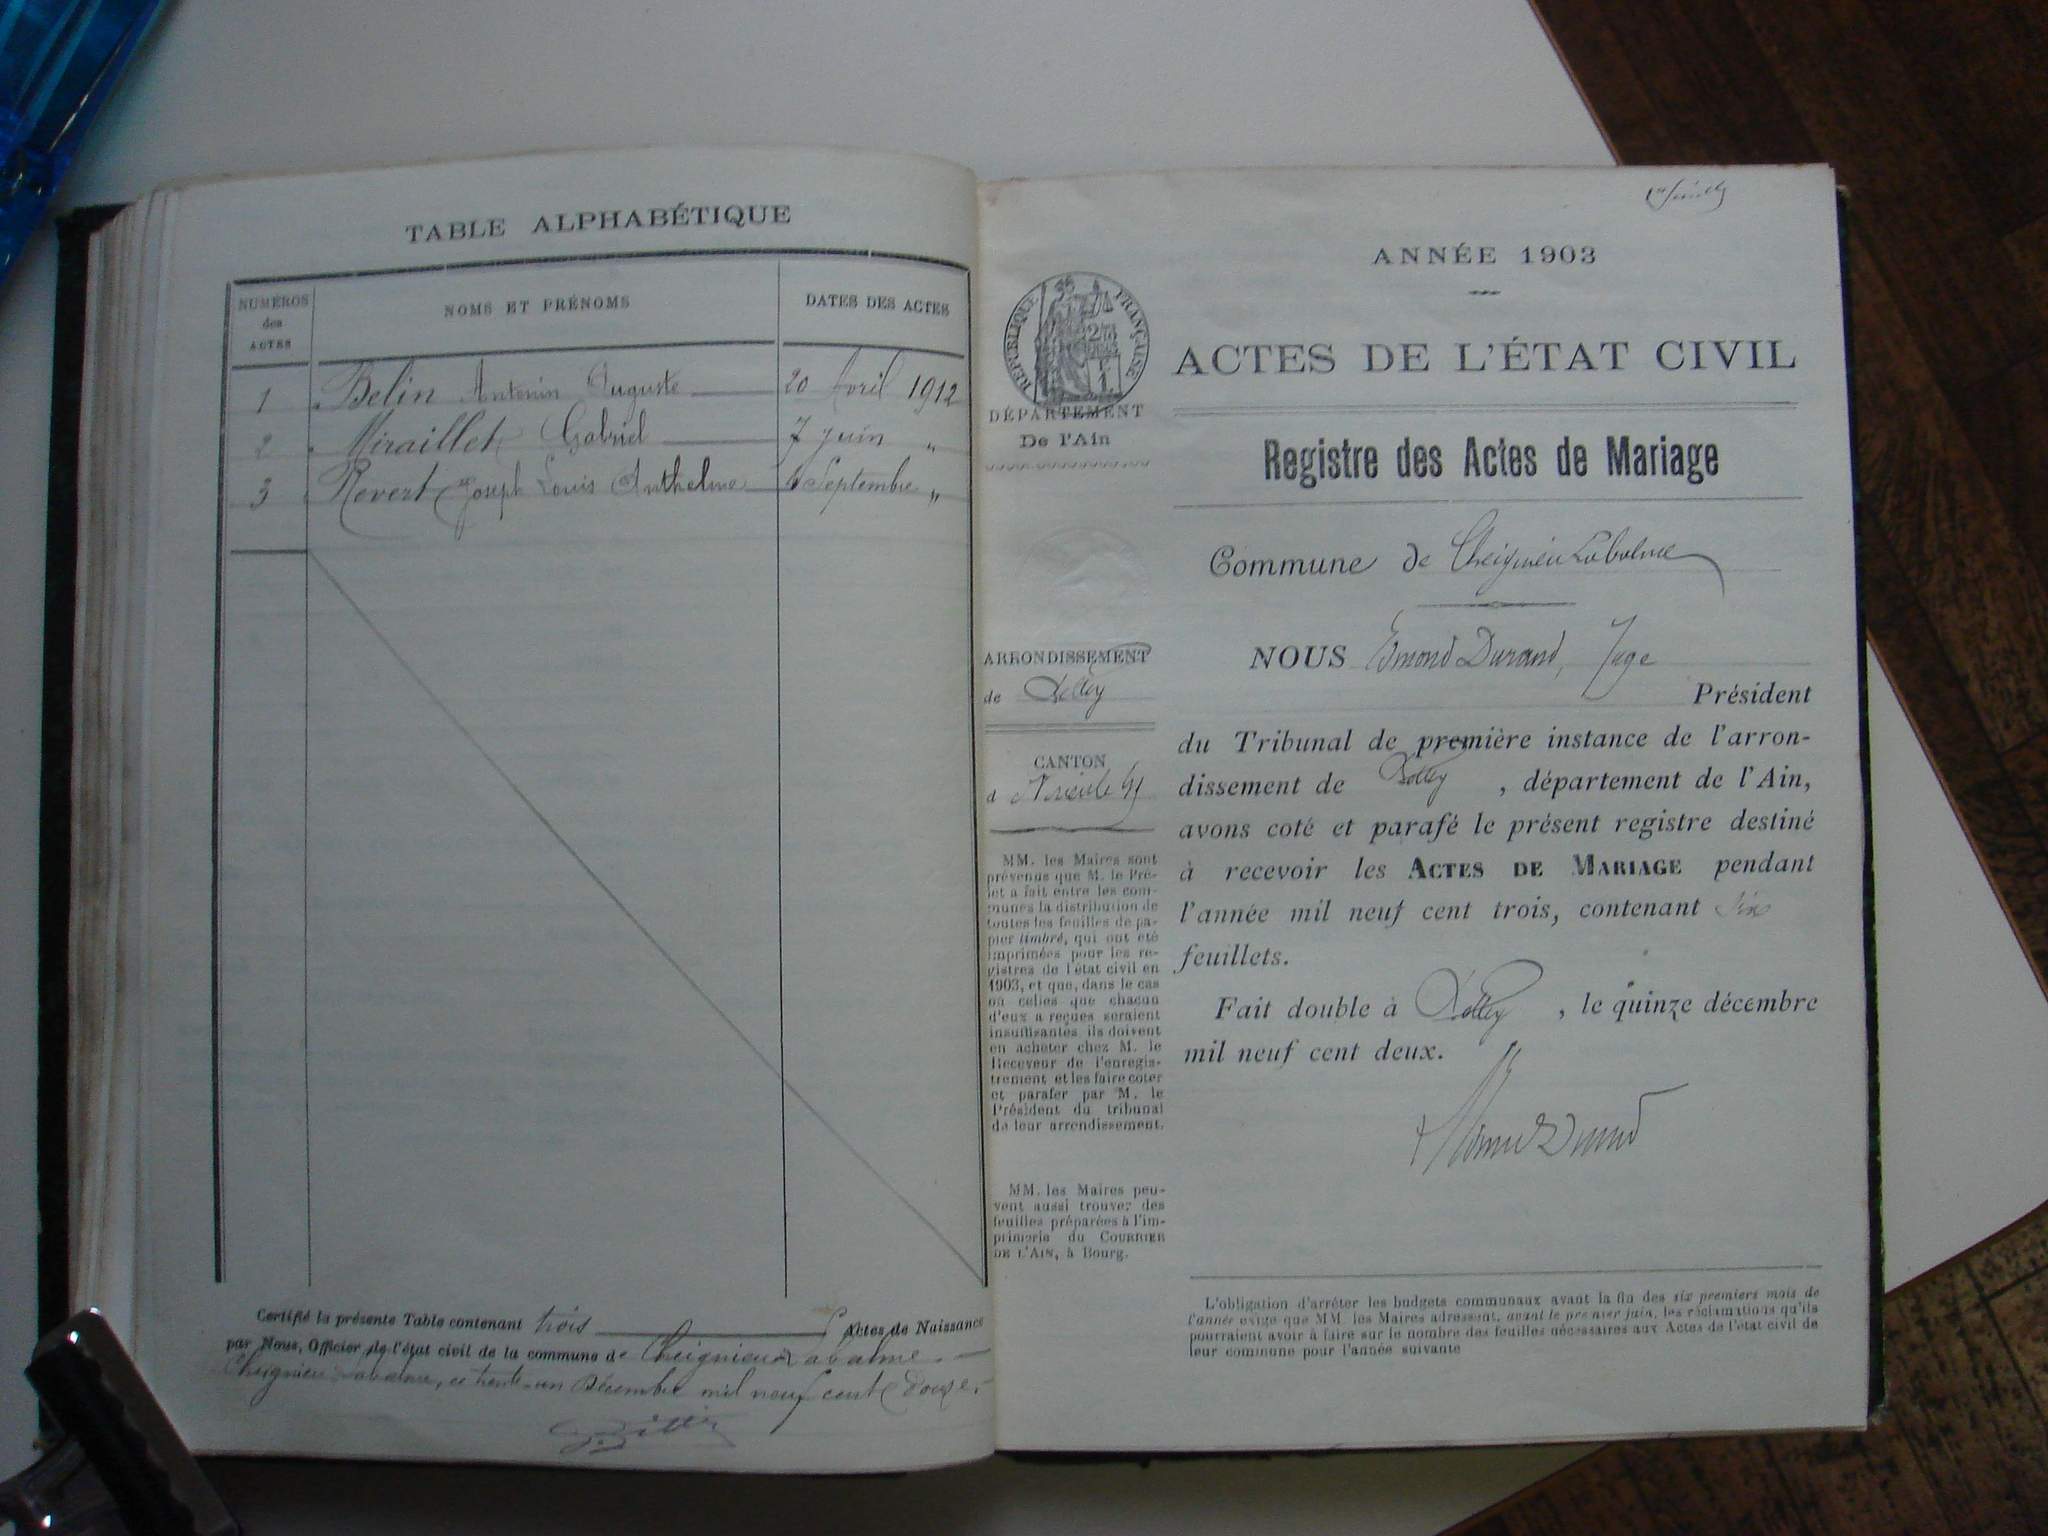 TABLE ALPHABÉTIQUE
NUMÉROS
des
ACTES
NOMS ET PRÉNOMS
DATES DES ACTES
1 Belin Antonin Auguste 20 Avril 1912
2 Miraillet Gabriel 7 Juin "
3 Revert Joseph Louis Anthelme 6 Septembre "
Certifié la présente Table contenant trois Actes de Naissance
par Nous, Officier de l'état civil de la commune de Cheignieu Labalme
Cheignieu Labalme, ce trente-un Décembre mil neuf cent douze.
1er feuillet
ANNÉE 1903
RÉPUBLIQUE FRANÇAISE
ACTES DE L'ÉTAT CIVIL
DÉPARTEMENT
De l'Ain
Registre des Actes de Mariage
Commune de Cheignieu Labalme
ARRONDISSEMENT
de Belley
CANTON
MM. les Maires sont
prévenus que M. le Pré-
fet a fait entre les com-
munes la distribution de
toutes les feuilles de pa-
pier timbré, qui ont été
imprimées pour les re-
gistres de l'état civil en
1903, et que, dans le cas
où celles que chacun
d'eux a reçues seraient
insuffisantes ils doivent
en acheter chez M. le
Receveur de l'enregis-
trement et les faire coter
et parafer par M. le
Président du tribunal
de leur arrondissement.
MM. les Maires peu-
vent aussi trouver des
feuilles préparées à l'im-
primerie du COURRIER
DE L'AIN, à Bourg.
NOUS Edmond Durand, Juge
Président
du Tribunal de première instance de l'arron-
dissement de Belley, département de l'Ain,
avons coté et parafé le présent registre destiné
à recevoir les ACTES DE MARIAGE pendant
l'année mil neuf cent trois, contenant six
feuillets.
Fait double à Belley, le quinze décembre
mil neuf cent deux.
L'obligation d'arrêter les budgets communaux avant la fin des six premiers mois de
l'année exige que MM. les Maires adressent, avant le premier juin, les réclamations qu'ils
pourraient avoir à faire sur le nombre des feuilles nécessaires aux Actes de l'état civil de
leur commune pour l'année suivante